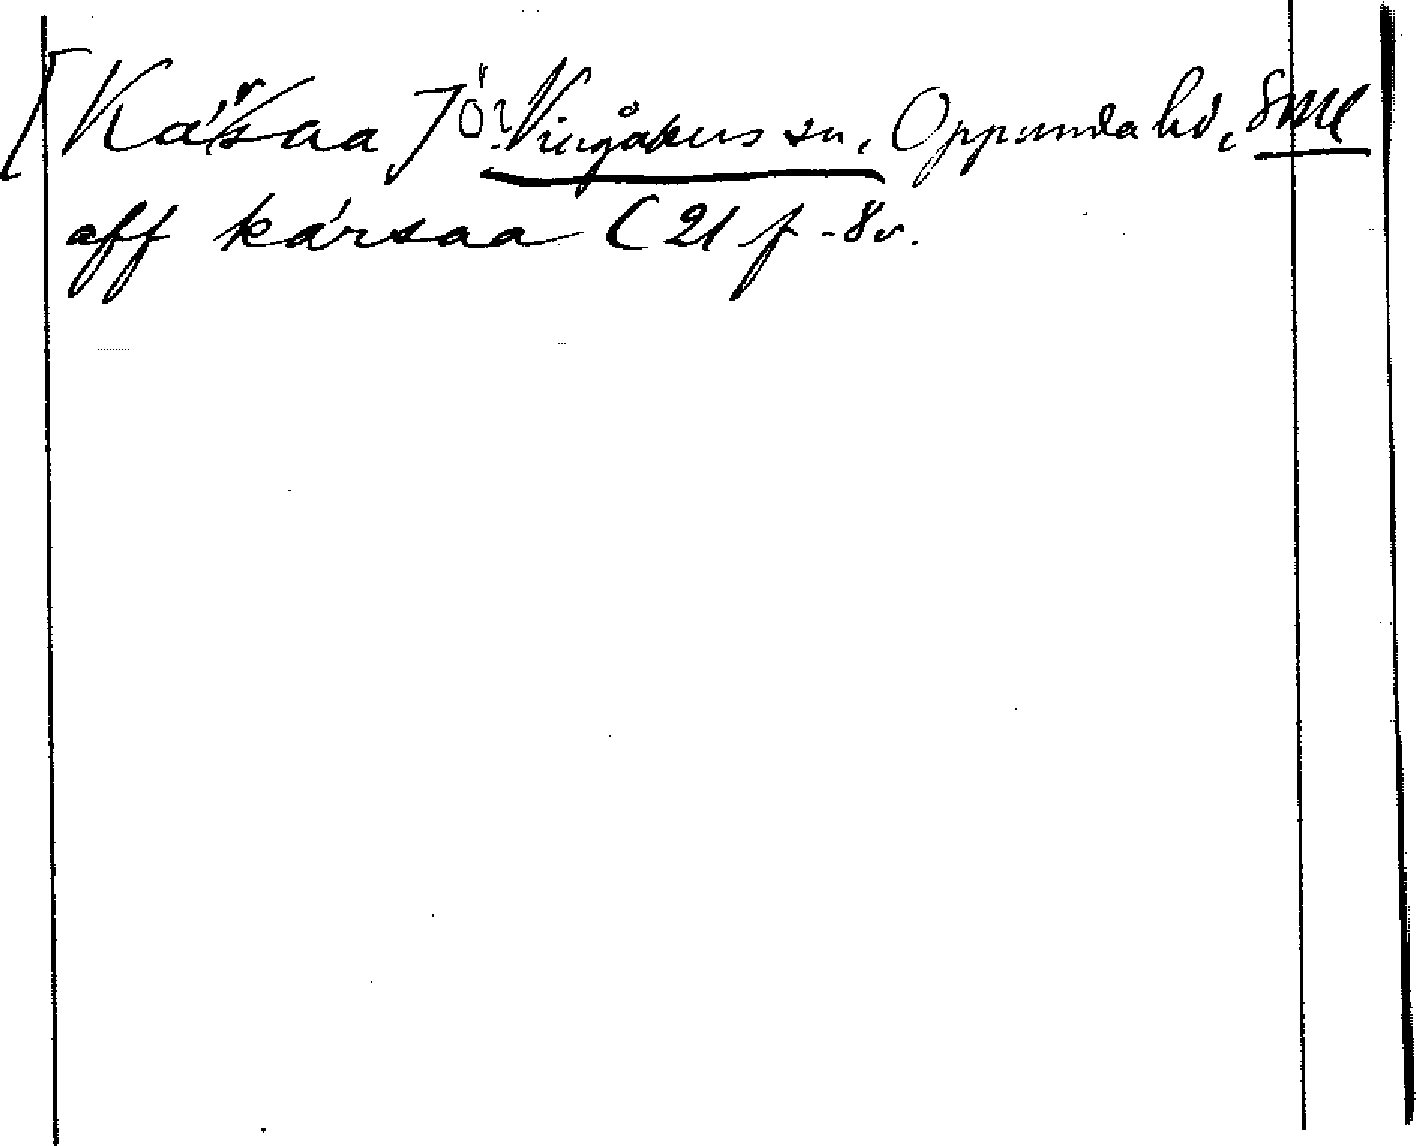 [Kársaa] Ö? Vingåkers sn, Oppunda hd, Sml
aff kársaa (21 f - 8v.